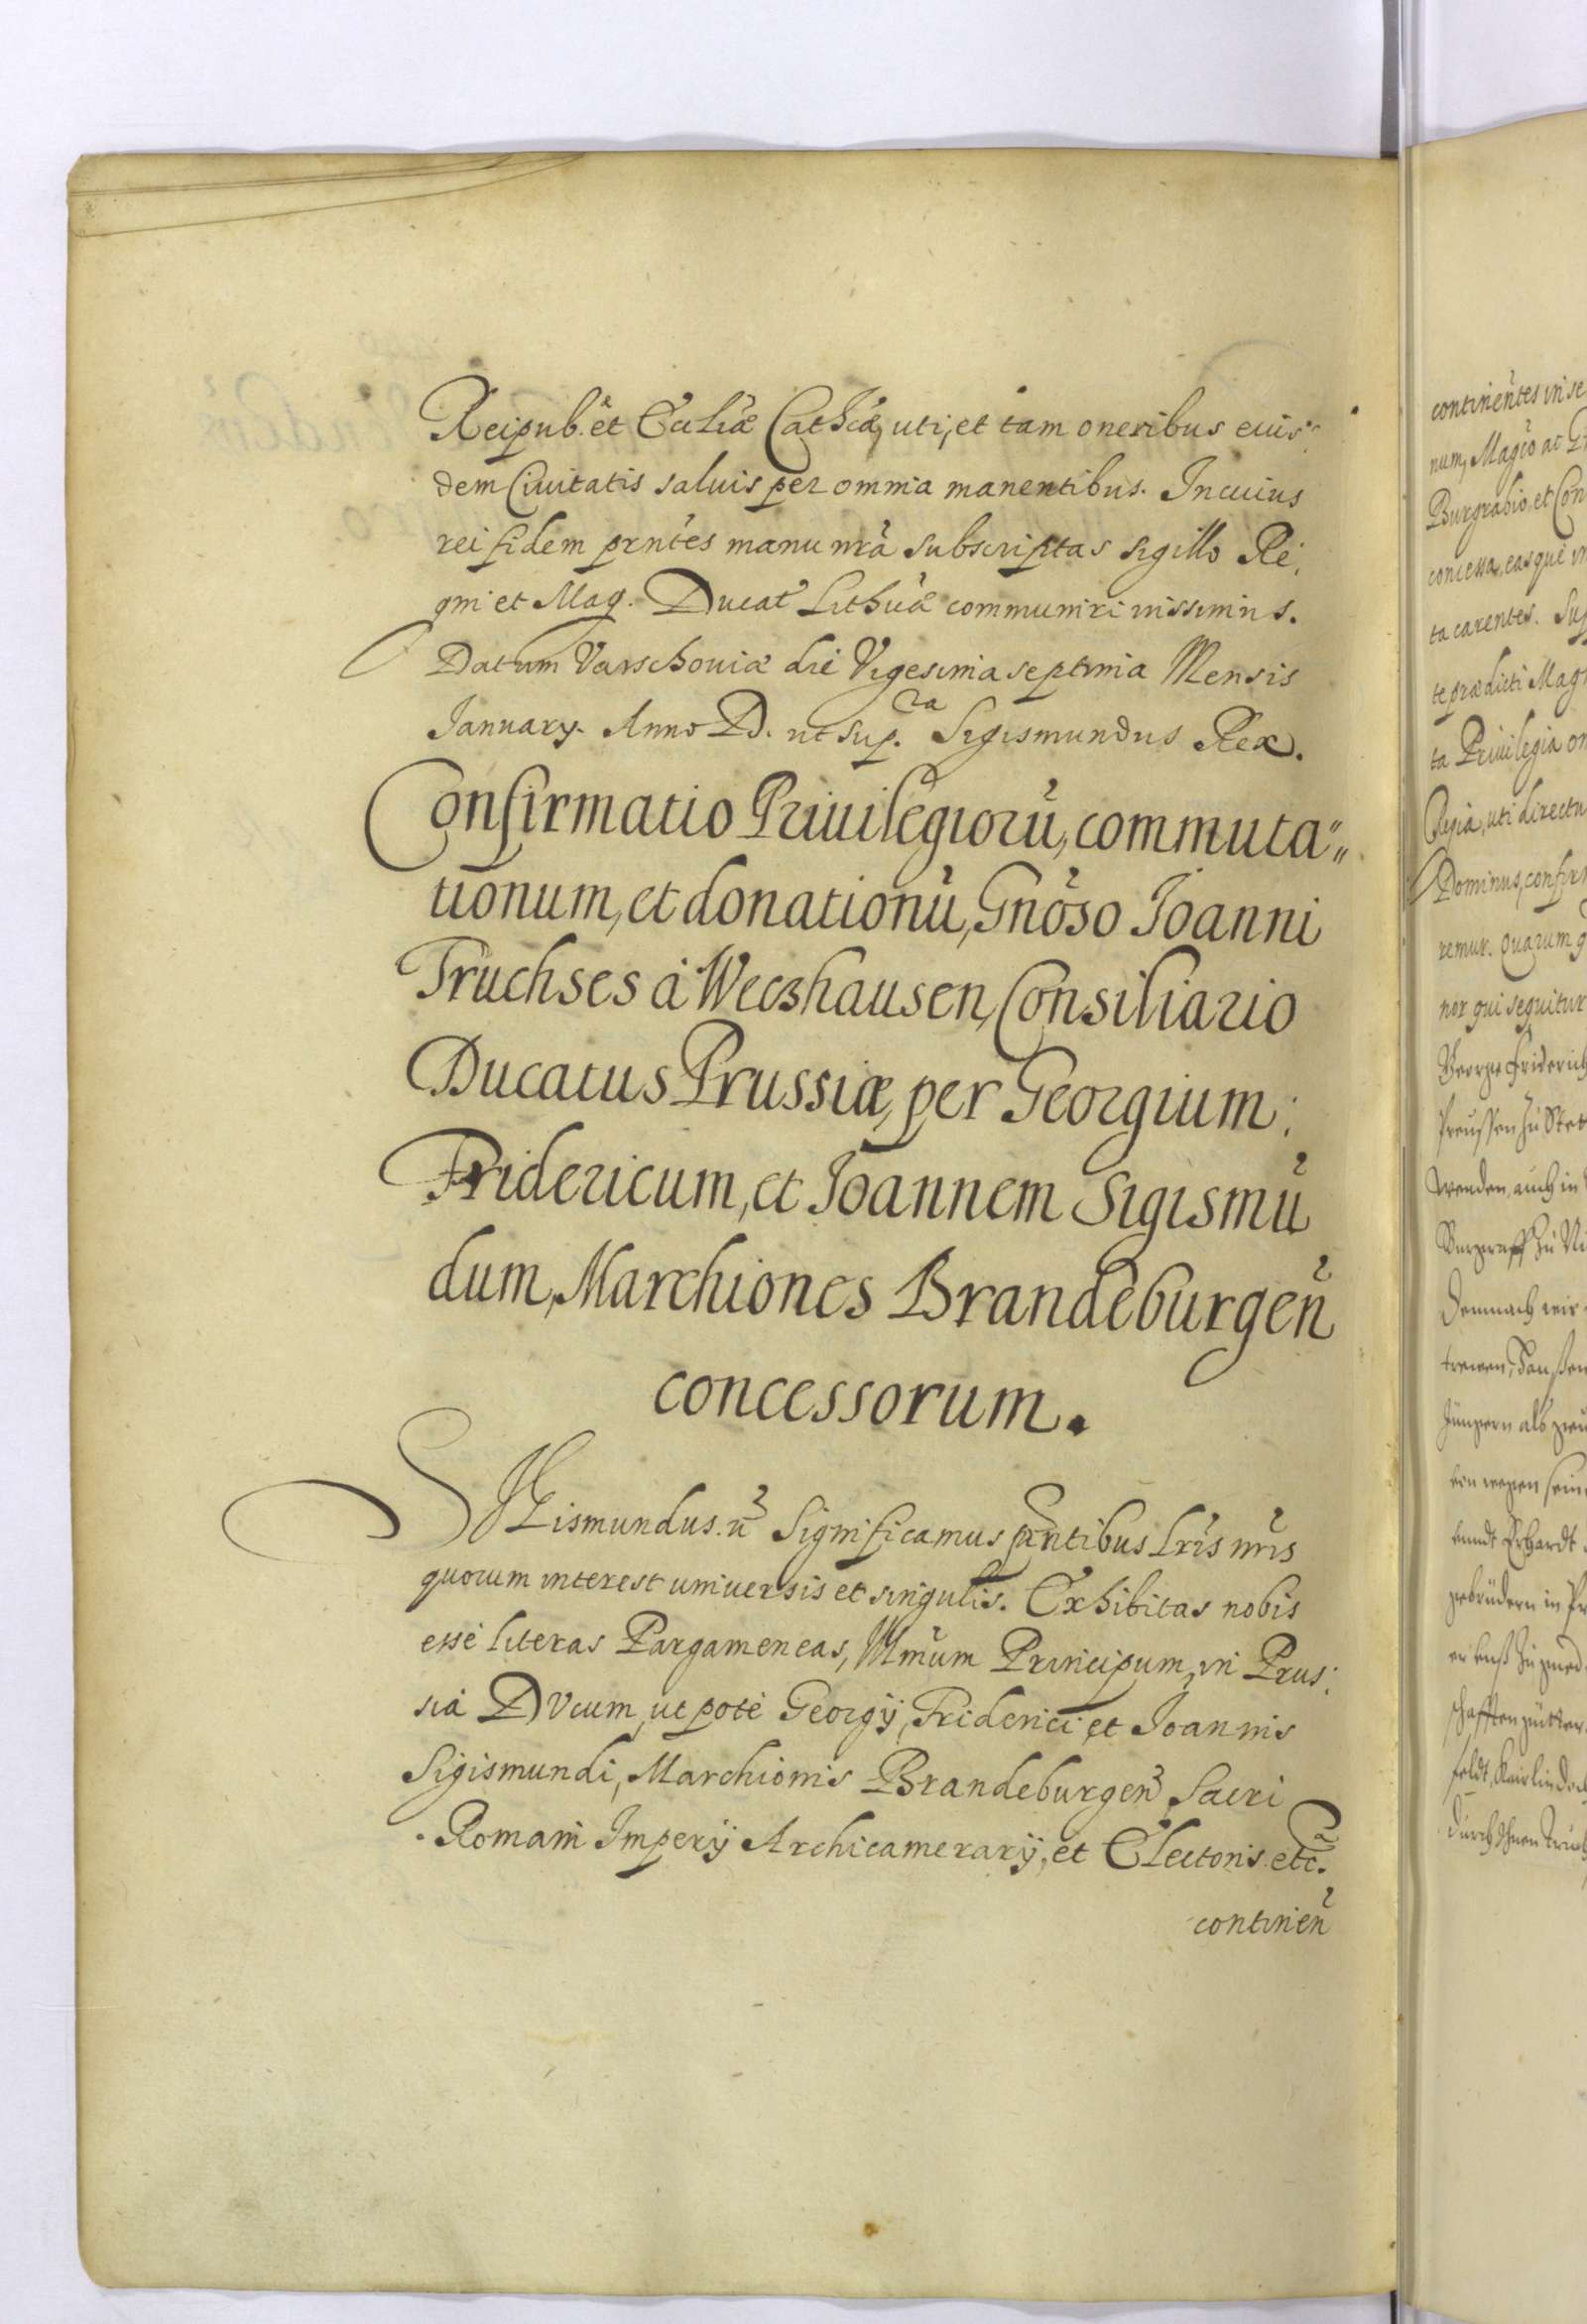 Reipub. et Eccliæ Cathcæ, uti, et tam oneribus eius-
dem Ciuitatis saluis per omnia manentibus. In cuius
rei fidem prntes manu nra subscriptas sigillo Re:
gni et Mag. Ducat Lithuæ communiri iussimus.
Datum Varschouiæ die Vigesima septima Mensis
January. Anno D. ut sup.ra Sigismundus Rex.
Confirmatio Priuilegiorũ, commuta„
tionum, et donationũ, Gnoso Joanni
Truchses à Weczhausen, Consiliario
Ducatus Prussiæ, per Georgium:
Fridericum, et Joannem Sigismũ
dum, Marchiones Brandeburgen̄
concessorum.
SIGismundus. ñ Significamus pñtibus Lris nris
quorum interest uniuersis et singulis. Exhibitas nobis
esse literas Pargameneas, Illmum Principum, in Prus:
sia DVcum, ut pote Georgij, Friderici et Joannis
Sigismundi, Marchionis Brandeburgen̄, Sacri
Romani Imperij Archicamerarij, et Electoris etc.
continen̄
continentes in se
num, Magco ac G
Burgrabio, et Con
concessa, easque in
ta carentes. Sup
te prædicti Magn
ta Priuilegia om
Regia, uti directu
Dominus, confirm
remur. Quarum
nor qui sequitur
Georg Friderich
Preussen zu Stet
Wenden, auch in
Burggraff zu Nü
Demnach wir